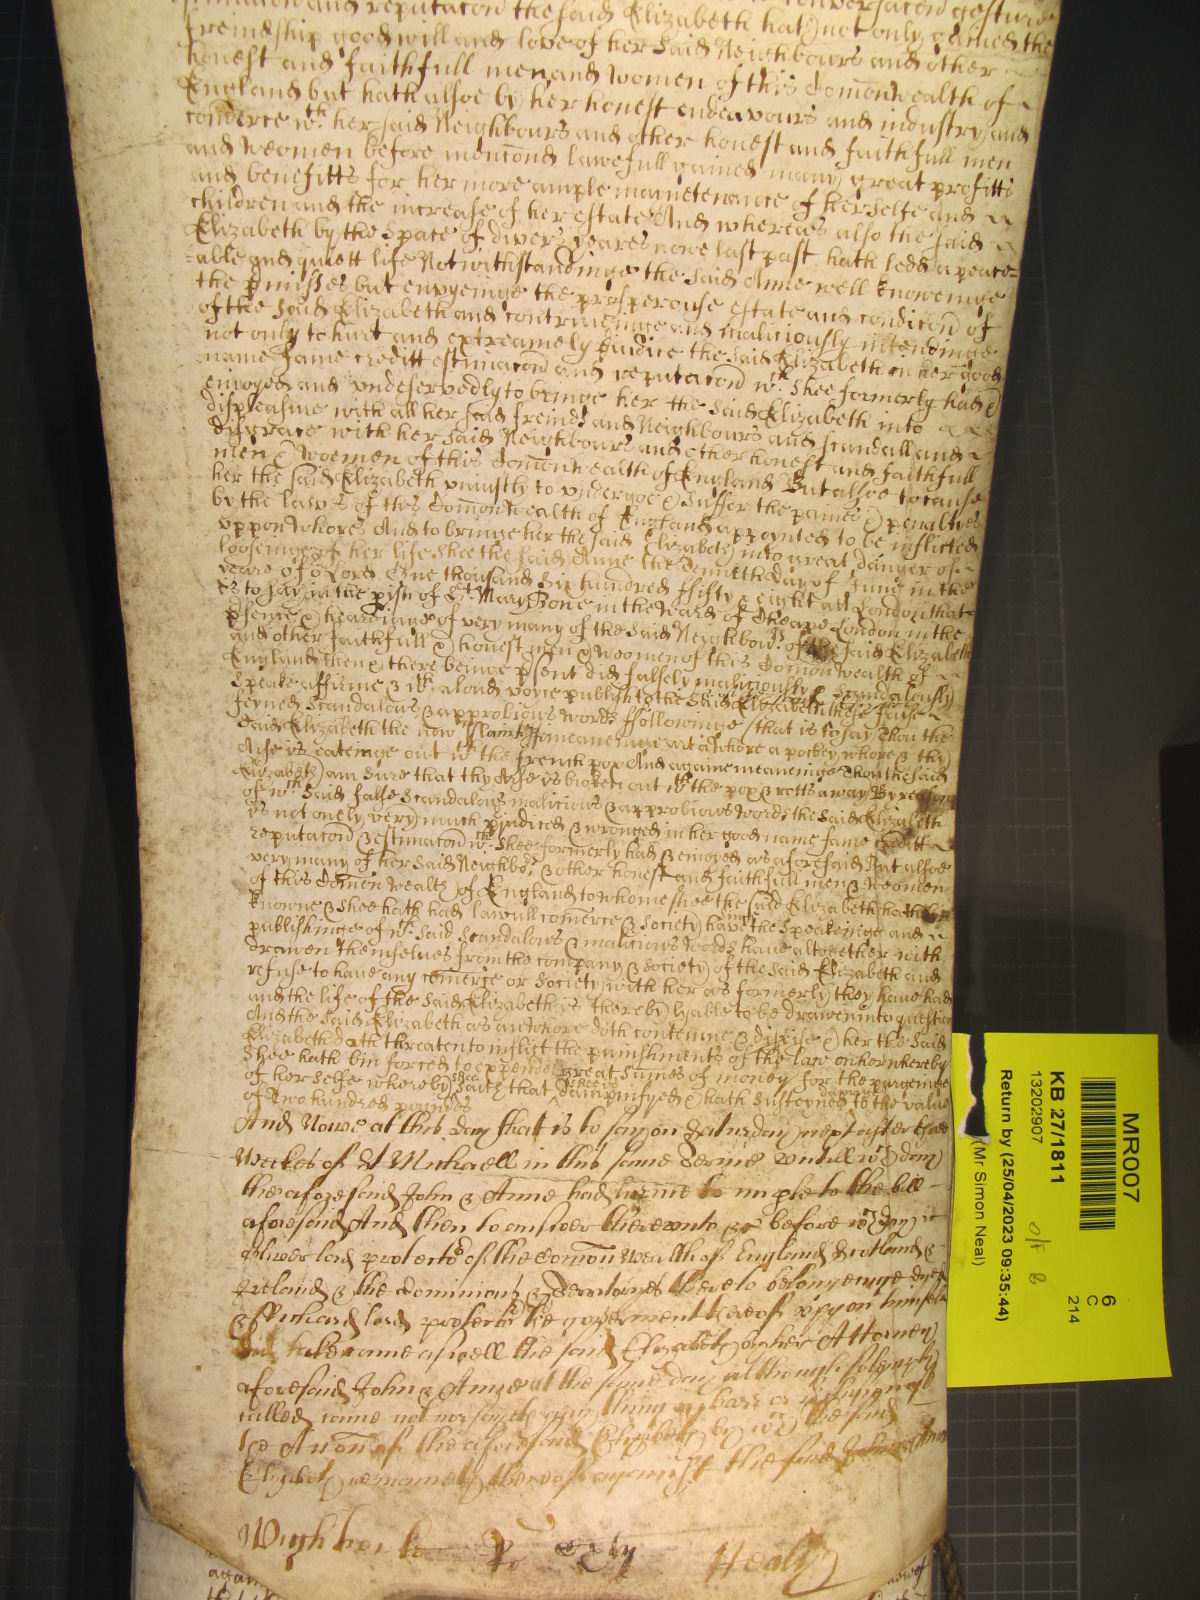 and reputacon the said Elizabeth hath not only gained the
freindship good will and love of her said Neighbours and other
honest and faithfull men and women of this Comonwealth of
England but hath alsoe by her honest endeavours and industry and
comerce wth her said Neighbours and other honest and faithfull men
and Weomen before menconed lawfull gained many great profitts
and benefitts for her more ample maintenance of her selfe and
children and the increase of her estate And whereas also the said
Elizabeth by the space of divers yeares nowe last past hath ledd a peace=
=able and quiett life Notwithstandinge the said Anne well knoweinge
the pmisses but envyeinge the prosperouse estate and condicon of
of the said Elizabeth and contriveinge and maliciously intendinge
not only to hurt and extreamely pjudice the said Elizabeth in her good
name fame creditt estimacon and reputacon wch shee formerly had &
enioyed and undeservedly to bringe her the said Elizabeth into
displeasure with all her said freinds and Neighbours and scandall and
disgrace with her said Neighbours and other honest and faithfull
men & Weomen of this Comonwealth of England But alsoe to cause
her the said Elizabeth uniustly to undergoe & suffer the paines & penalties
by the lawes of this Comonwealth of England appointed to be inflicted
uppon Whores And to bringe her the said Elizabeth into great danger of
looseinge of her life Shee the said Anne the Tenneth day of June in the
yeare of or Lord One thousand six hundred ffifty & eight att London that
is to say in the pish of St Mary Bone in the Ward of Cheape London in the
psence & heareinge of very many of the said Neighbours of the said Elizabeth
and other faithfull & honest men & Weomen of this Comonwealth of
England then & there beinge psent did falsely maliciously & scandalously
speake affirme & wth aloud voyce publish to the said Elizabeth these false
feyned scandalous & approbious words ffollowinge (that is to say) Thou the
said Elizabeth the now Plaint meaneinge art a Whore a pockey whore & thy
Nose is eateinge out wth the french pox And againe meaneinge Thou the said
Elizabeth am sure that thy Nose is broken out wth the pox & rotts away By reason
of wch said false scandalous malicious & approbious words the said Elizabeth
is not onely very much pjudiced & wronged in her good name fame creditt
reputacon & estimacon wch shee formerly had & enioyed as aforesaid But alsoe
very many of her said Neighbrs & other honest and faithfull men & Weomen
of this Comon Wealth of England to whome shee the said Elizabeth hath bin
knowne & shee hath had lawull comerce & society have the speakeinge and
publishinge of wch said scandalous & malicious words have altogether with
drawen themselves from the company & society of the said Elizabeth and
refuse to have any comerce or society with her as formerly they have had
and the life of the said Elizabeth is thereby lyable to be drawen into question
And the said Elizabeth as a Whore doth contemne & dispise & her the said
Elizabeth doth threaten to inflict the punishments of the law on her whereby
Shee hath bin forced to expende great sumes of money for the purgeinge
of her selfe whereby shee saith that shee is dampnifyed & hath susteyned damage to the value
of Two hundred pounds
And Nowe at this day that is to say on Saturday next after three
Weekes of St Michaell in this same Terme untill wch day
the aforesaid John & Anne had lycence to imparle to the bill
aforesaid And then to answer thereunto &c before
Oliver lord protector of the Comon Wealth of England Scotland &
Ireland & the dominions & Territories thereto belonginge dyed
& Richard lord protector the government thereof uppon himselfe
did take came aswell the said Elizabeth by her Attorney
aforesaid John & Anne at the same day although solemnly
called came not nor sayeth any thing in barr or
the Accon of the aforesaid Elizabeth by wch the said
Elizabeth remaineth thereof against the said John & Anne
Wightwicke Po Ely Healy
MR007
6
C
214
KB 27/1811
13202907
Return by (25/04/2023 09:35:44)
(Mr Simon Neal)